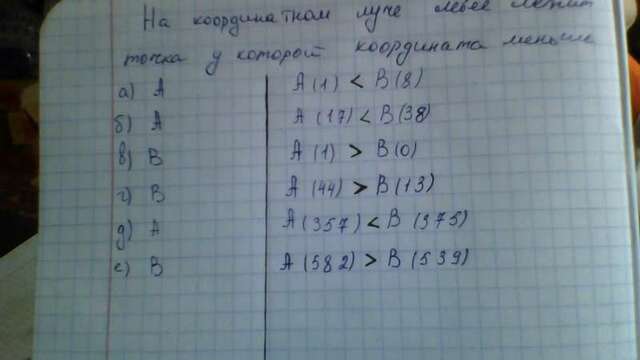 На координатном луче левее лежит
точка у которой координата меньше
а) А А(1) < В(8)
б) А А(17) < В(38)
в) В А(1) > В(0)
г) В А(44) > В(13)
д) А А(357) < В(375)
е) В А(582) > В(539)